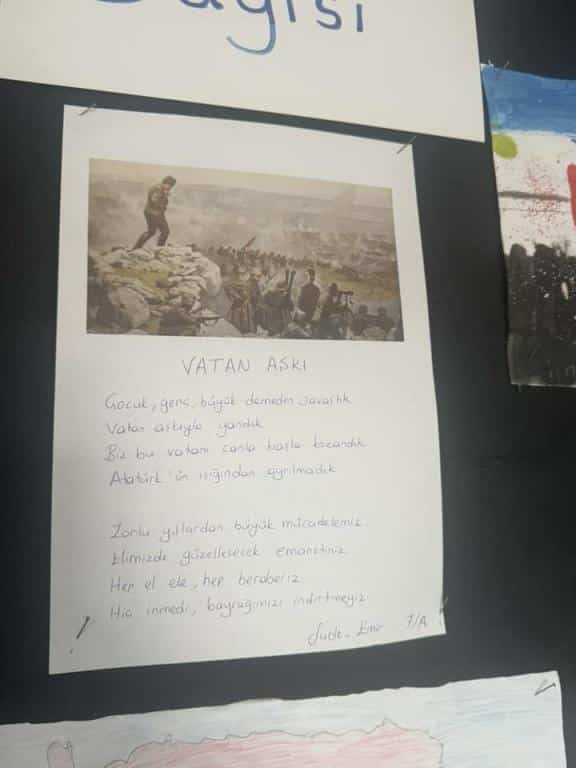 ayısı
VATAN AŞKI
Çocuk, genç, büyük demeden savaştık
Vatan aşkıyla yandık
Biz bu vatanı canla başla kazandık
Atatürk'ün ışığından ayrılmadık
Zorlu yıllardan büyük mücadelemiz
Elimizde güzelleşecek emanetiniz
Hep el ele, hep beraberiz
Hiç inmedi, bayrağımızı indirtmeyiz
7/A